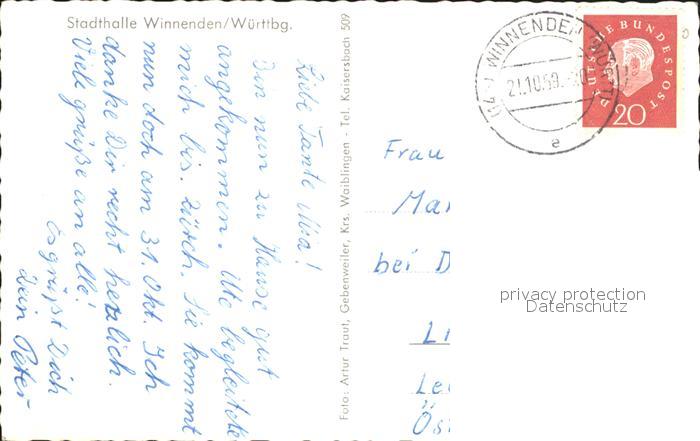 Stadthalle Winnenden/Württbg.
Liebe Tante Mia!
Bin nun zu Hause gut
angekommen. Ute begleitete
mich bis Zürich. Sie kommt
nun doch am 31. Okt. Ich
danke Dir recht herzlich.
Viele Grüße an alle!
Es grüßt Dich
Dein Peter
Foto: Artur Traut, Gebenweiler, Krs. Waiblingen - Tel. Kaisersbach 509
WINNENDEN (WÜRTT)
21.10.59
a
DEUTSCHE BUNDESPOST
20
Frau
Mar
bei D
Li
Le
Ös
privacy protection
Datenschutz